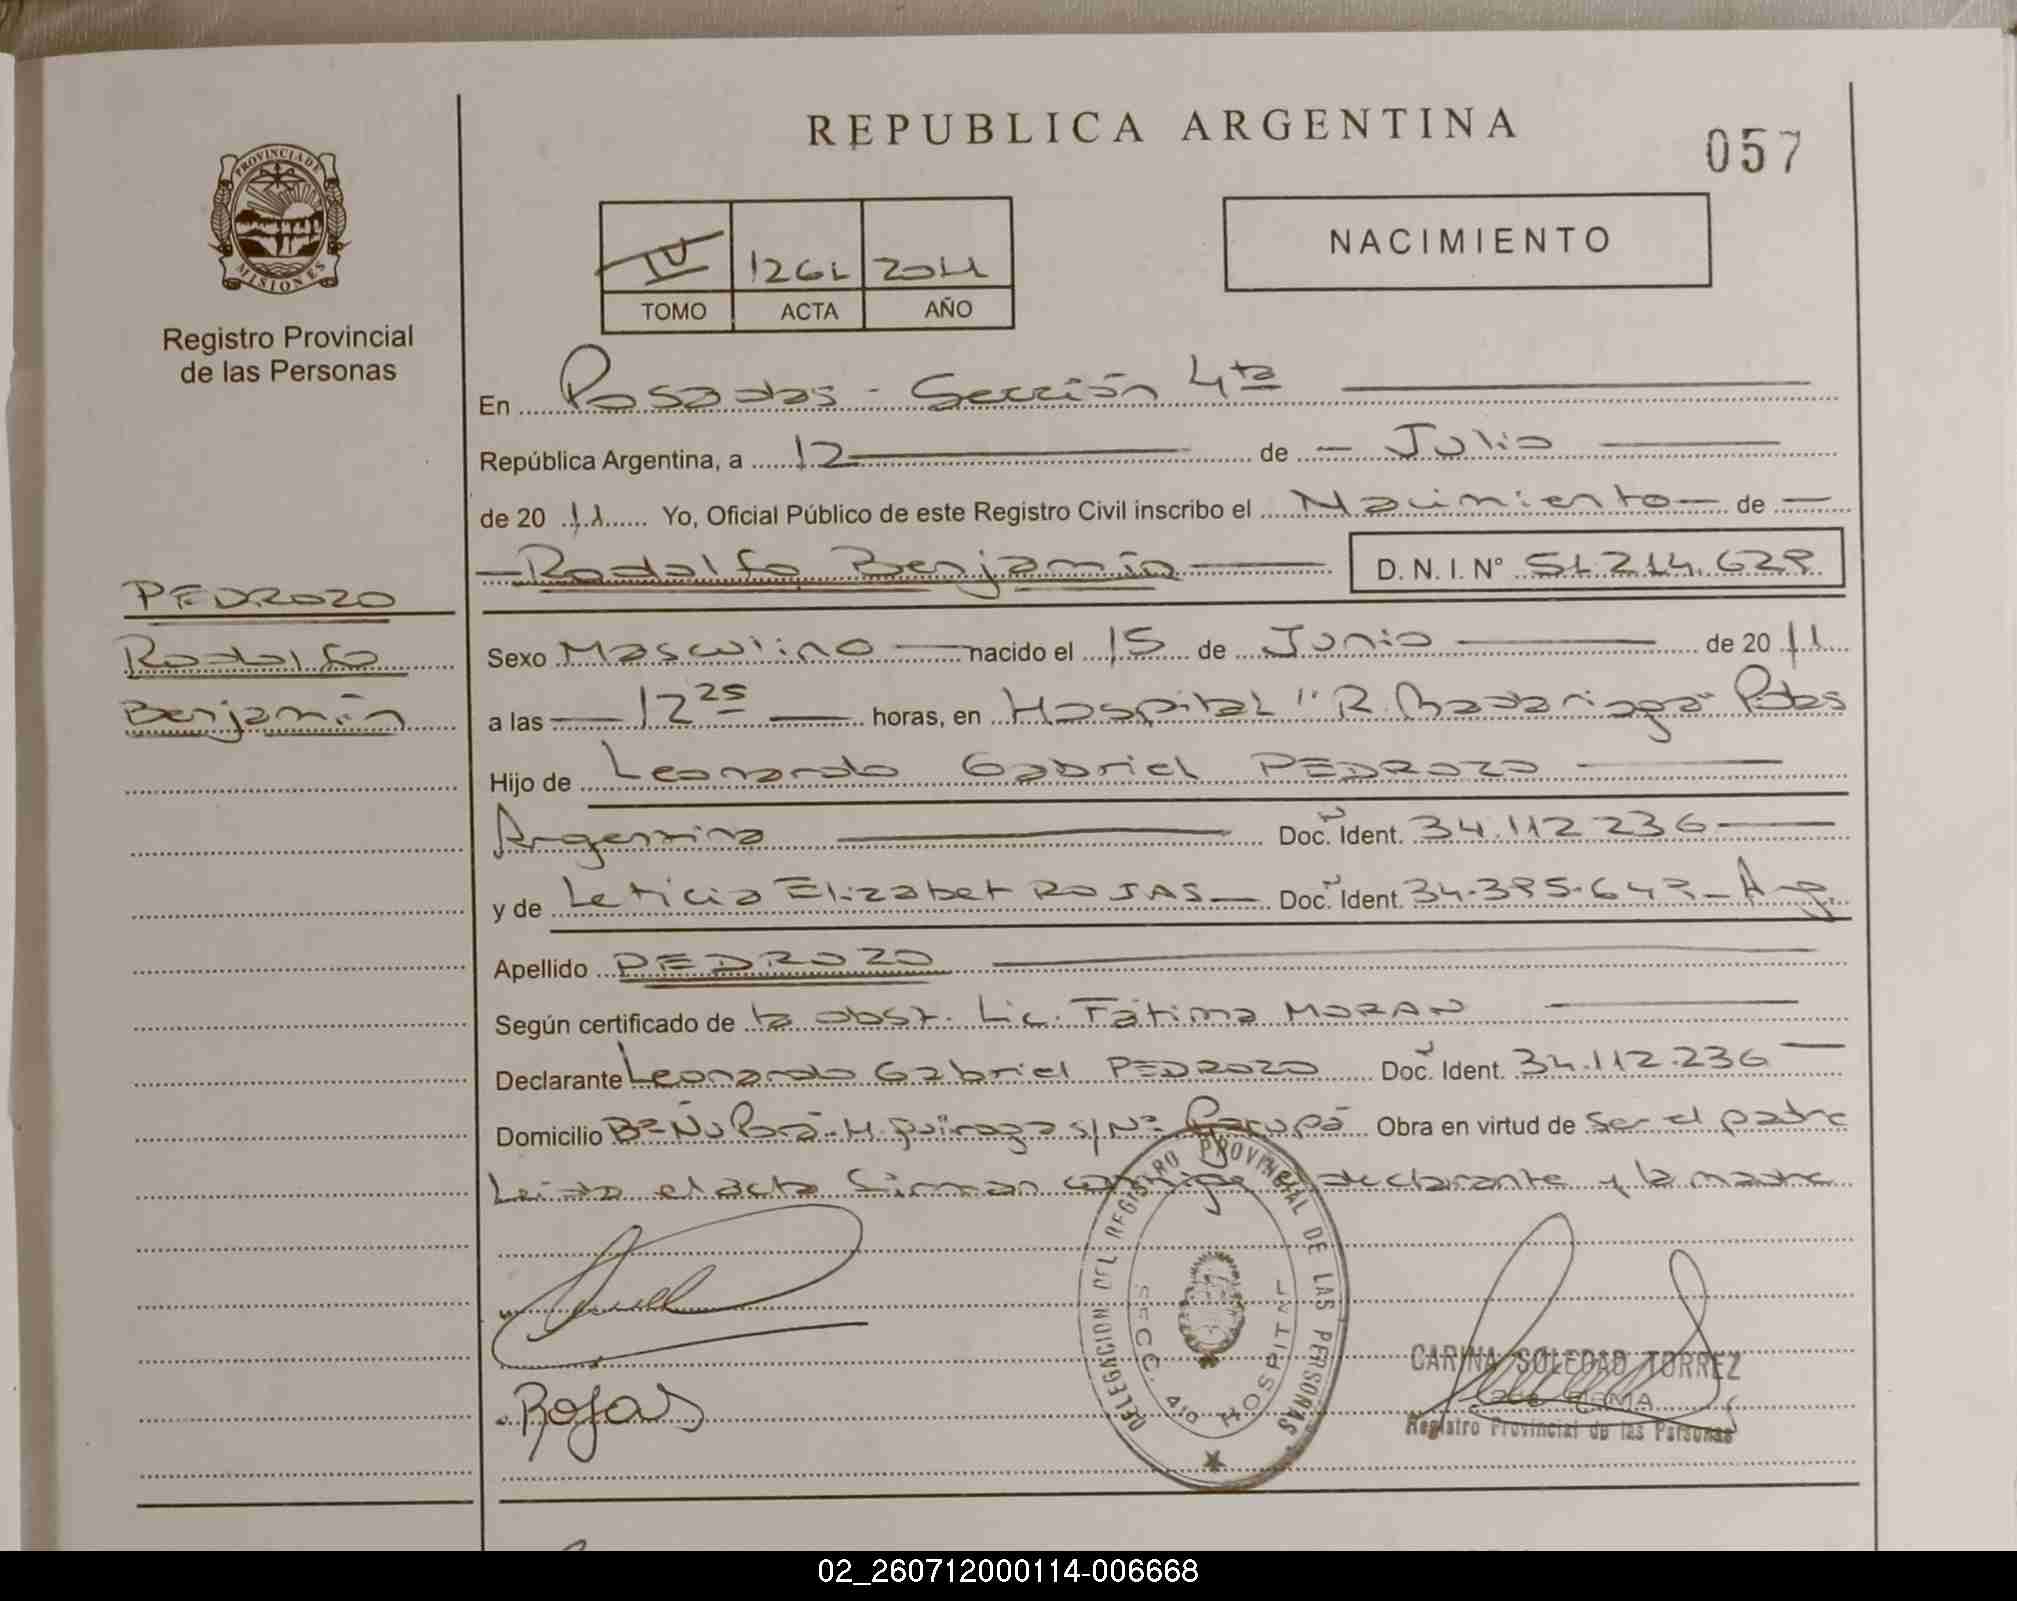 REPUBLICA ARGENTINA
057
PROVINCIA DE MISIONES
Registro Provincial
de las Personas
IV 1261 2011
TOMO ACTA AÑO
NACIMIENTO
En Posadas - Sección 4ta
República Argentina, a 12 de - Julio
de 20 11 Yo, Oficial Público de este Registro Civil inscribo el Nacimiento de
Rodolfo Benjamín D. N. I. N° 51.214.628
PEDROZO
Rodolfo
Benjamín
Sexo Masculino nacido el 15 de Junio de 20 11
a las 12 25 horas, en Hospital "R. Madariaga" Pdas
Hijo de Leonardo Gabriel PEDROZO
Argentina Doc. Ident. 34.112.236
y de Leticia Elizabet ROJAS Doc. Ident. 34.395.648 - Arg.
Apellido PEDROZO
Según certificado de la obst. Lic. Fátima MORAN
Declarante Leonardo Gabriel PEDROZO Doc. Ident. 34.112.236
Domicilio B° Ñu Porá - H. Quiroga s/N° Garupá Obra en virtud de ser el padre
Leída el acta firman conmigo declarante y la madre
DELEGACION DEL REGISTRO PROVINCIAL DE LAS PERSONAS
SECC. 4to HOSPITAL
Rojas
CARINA SOLEDAD TORREZ
FIRMA
Registro Provincial de las Personas
02_260712000114-006668